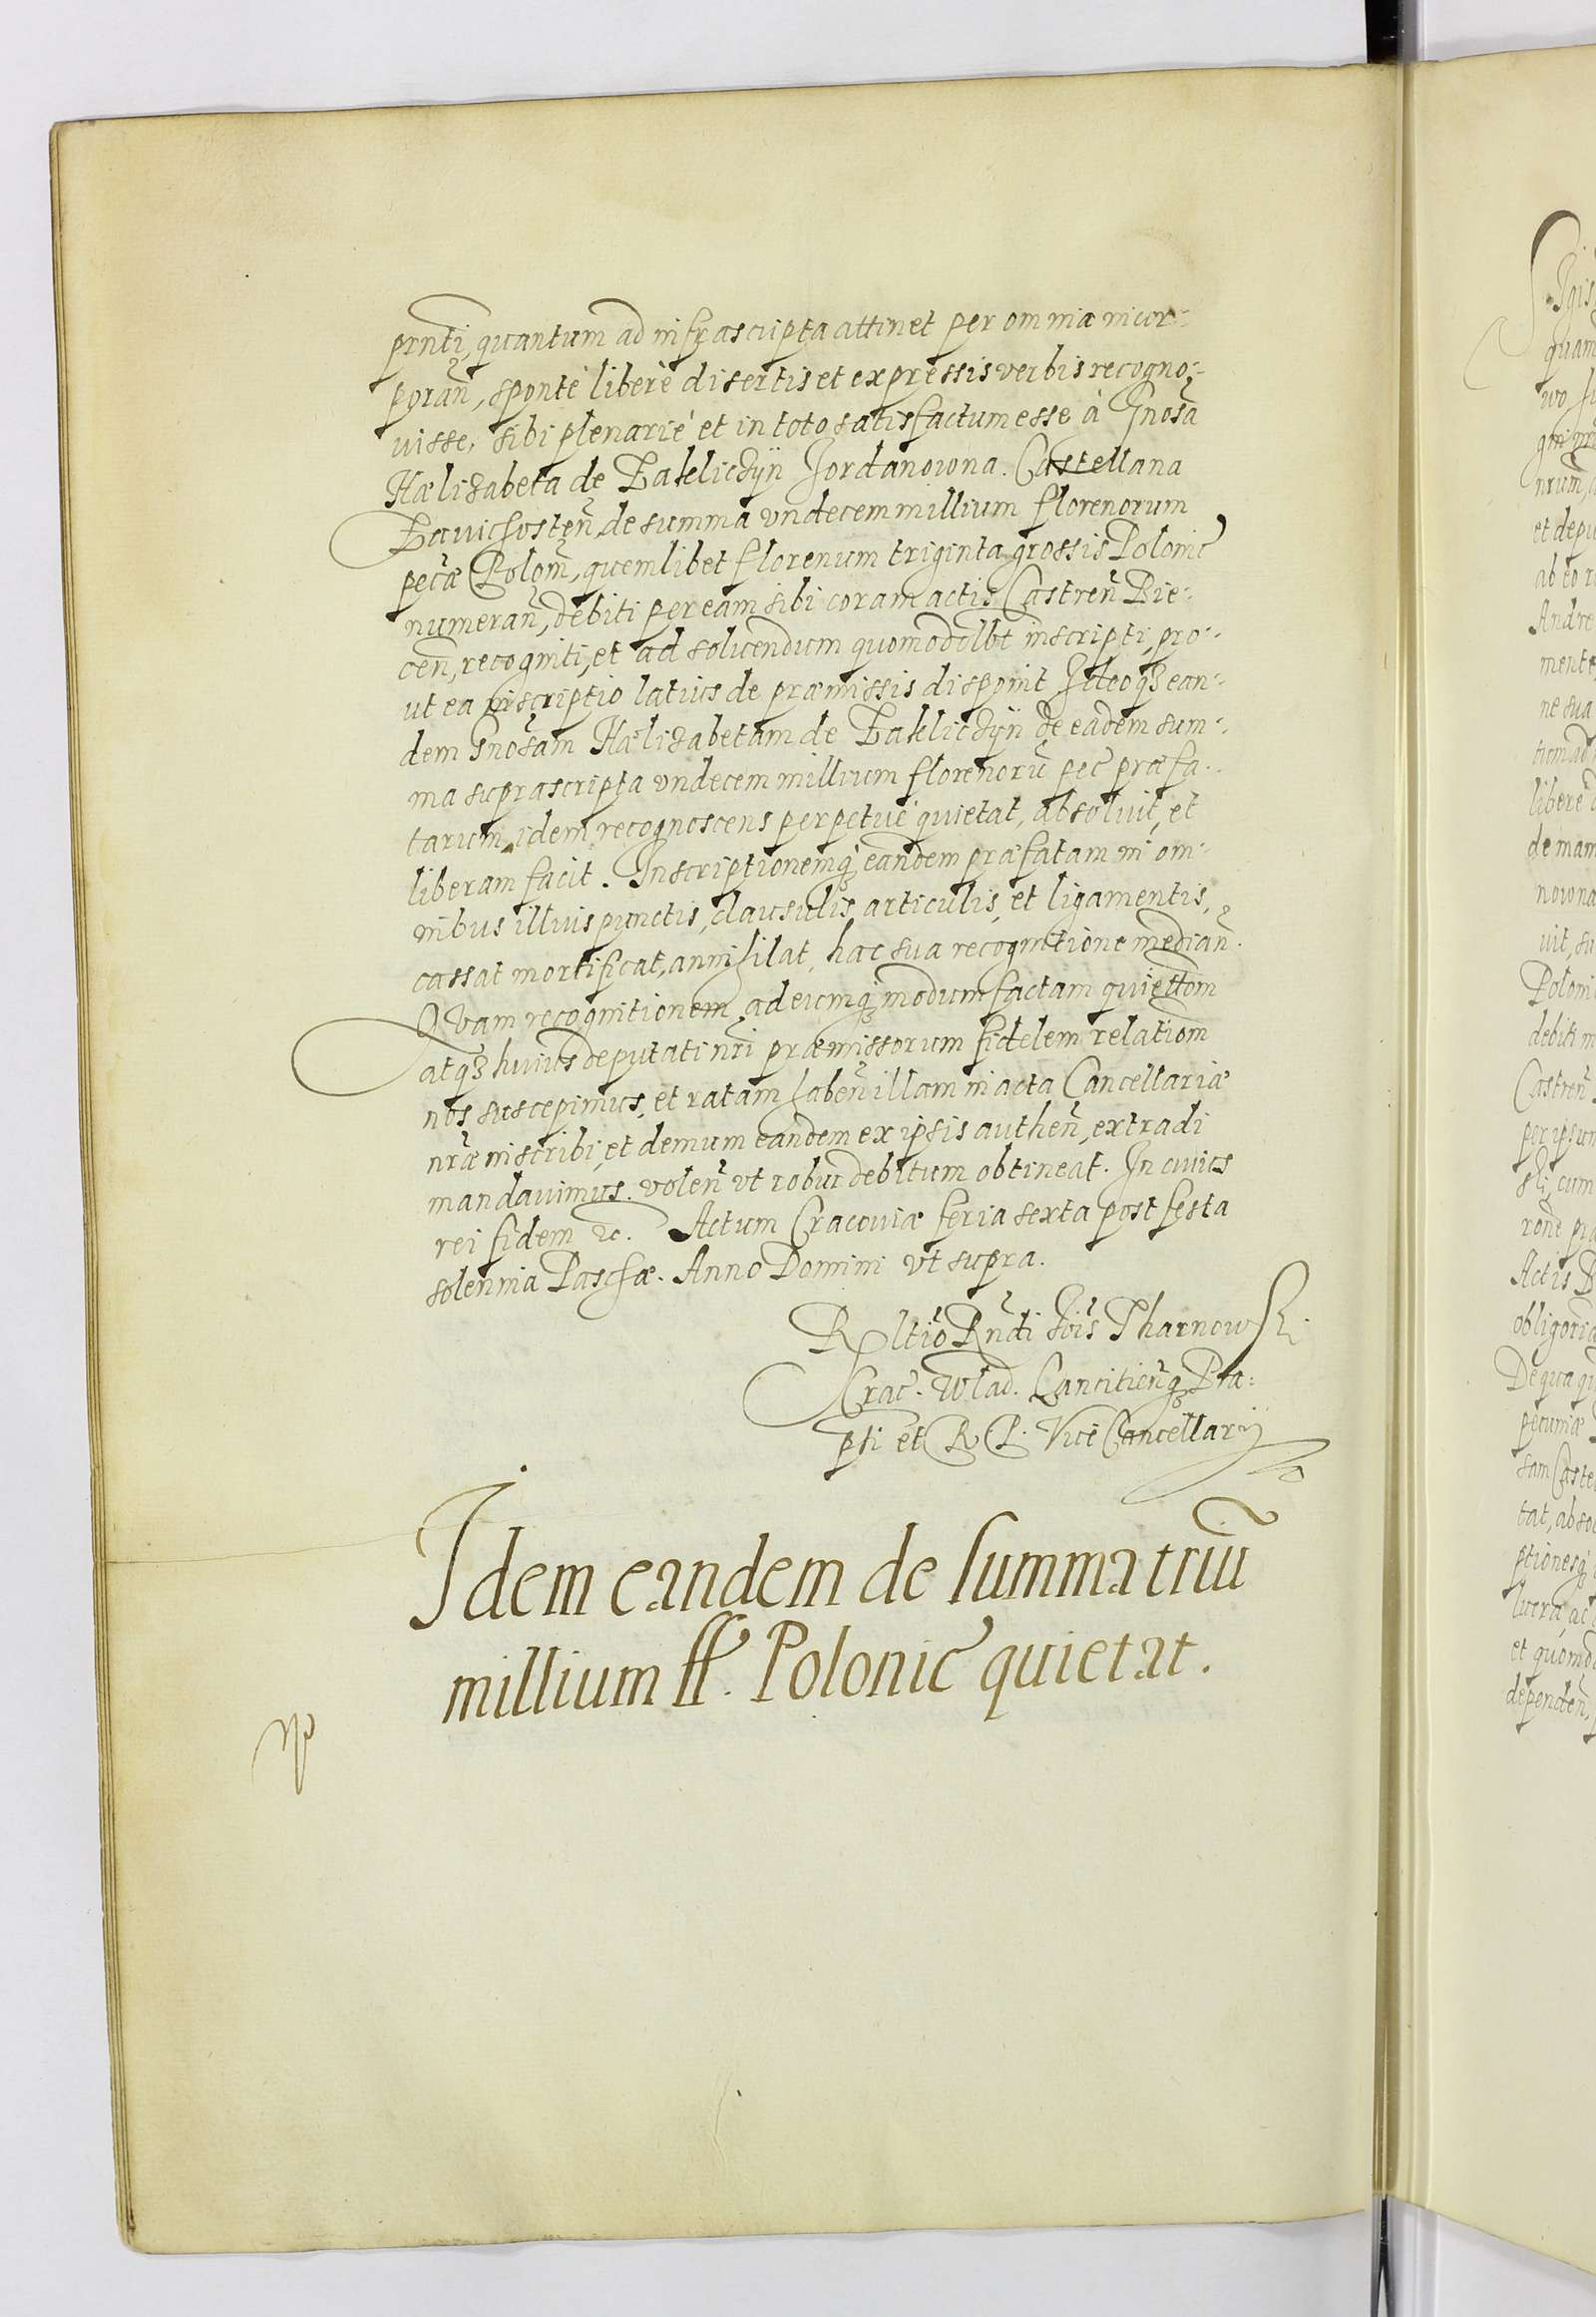 prnti, quantum ad infrascripta attinet per omnia incor-
poran̄, sponte libere disertis et expressis verbis recogno-
uisse, sibi plenarie et in toto satisfactum esse à Gnosa
Hælizabeta de Zakliczÿn Jordanowna. Castellana
Zawichosten̄, de summa vndecem millium florenorum
pecæ Polon̄, quemlibet florenum triginta grossis Polonic̄
numeran̄, debiti per eam sibi coram actis Castren̄ Bie-
cen̄, recogniti, et ad soluendum quomodolbt inscripti, pro-
ut ea inscriptio latius de præmissis disponit Ideoqȝ ean-
dem Gnosam Hælizabetam de Zakliczÿn de eadem sum-
ma suprascripta vndecem millium florenorū pec̄ præfa-
tarum, idem recognoscens perpetuè quietat, absoluit, et
liberam facit. Inscriptionemqȝ eandem præfatam in om-
nibus illius punctis, clausulis, articulis, et ligamentis,
cassat mortificat, annihilat, hac sua recognitione median̄.
Quam recognitionem, ad eumqȝ modum factam quiettom
atqȝ huius deputati nr̄i præmissorum fidelem relatiom
nos suscepimus, et ratam haben̄ illam in acta Cancellariæ
nr̄æ inscribi, et demum eandem ex ipsis authen̄, extradi
mandauimus. volen̄ vt robur debitum obtineat. In cuius
rei fidem &c. Actum Cracouiæ feria sexta post festa
solennia Paschæ. Anno Domini vt supra.
Rltio Rndi Jois Tharnowsk.
Crac. Wlad. Lancitien̄qȝ Præ-
pti et R. P. Vice Cancellarij
Idem eandem de summa triū
millium ff. Polonic̄ quietat.